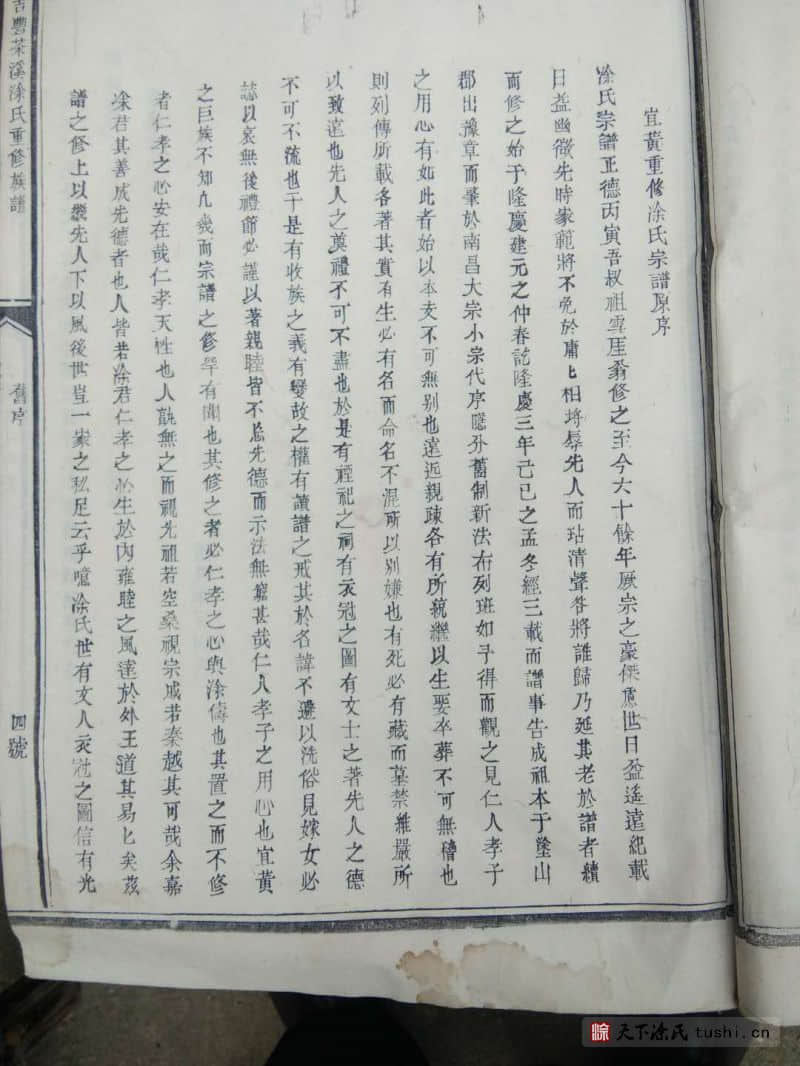 宜黄重修涂氏宗譜原序
涂氏宗譜正德丙寅吾叔祖雪厓翁修之至今六十餘年厥宗之豪傑慮世日益遙遠紀載
日益幽微先時家範將不免於庸匕相埒辱先人而玷清聲咎將誰歸乃延其老於譜者續
而修之始于隆慶建元之仲春訖隆慶三年己巳之孟冬經三載而譜事告成祖本于塗山
郡出豫章而肇於南昌大宗小宗代序隱分舊制新法布列班如予得而觀之見仁人孝子
之用心有如此者始以本支不可無别也遠近親疎各有所統繼以生娶卒葬不可無稽也
則列傳所載各著其實有生必有名而命名不混所以别嫌也有死必有藏而墓禁維嚴所
以致遠也先人之奠禮不可不盡也於是有禋祀之祠有衣冠之圖有文士之著先人之德
不可不流也于是有收族之義有變故之權有讀譜之戒其於名諱不避以洗俗見嫁女必
誌以哀無後禮節必謹以著親睦皆不忘先德而示法無窮甚哉仁人孝子之用心也宜黄
之巨族不知凡幾而宗譜之修罕有聞也其修之者必仁孝之心與涂儔也其置之而不修
者仁孝之心安在哉仁孝天性也人孰無之而視先祖若空桑視宗戚若秦越其可哉余嘉
涂君其善成先德者也人皆若涂君仁孝之心生於内雍睦之風達於外王道其易匕矣茲
譜之修上以承先人下以風後世豈一家之私足云乎噫涂氏世有文人衣冠之圖信有光
吉豐茶溪涂氏重修族譜
舊序
四號
涂 天下涂氏 tushi.cn